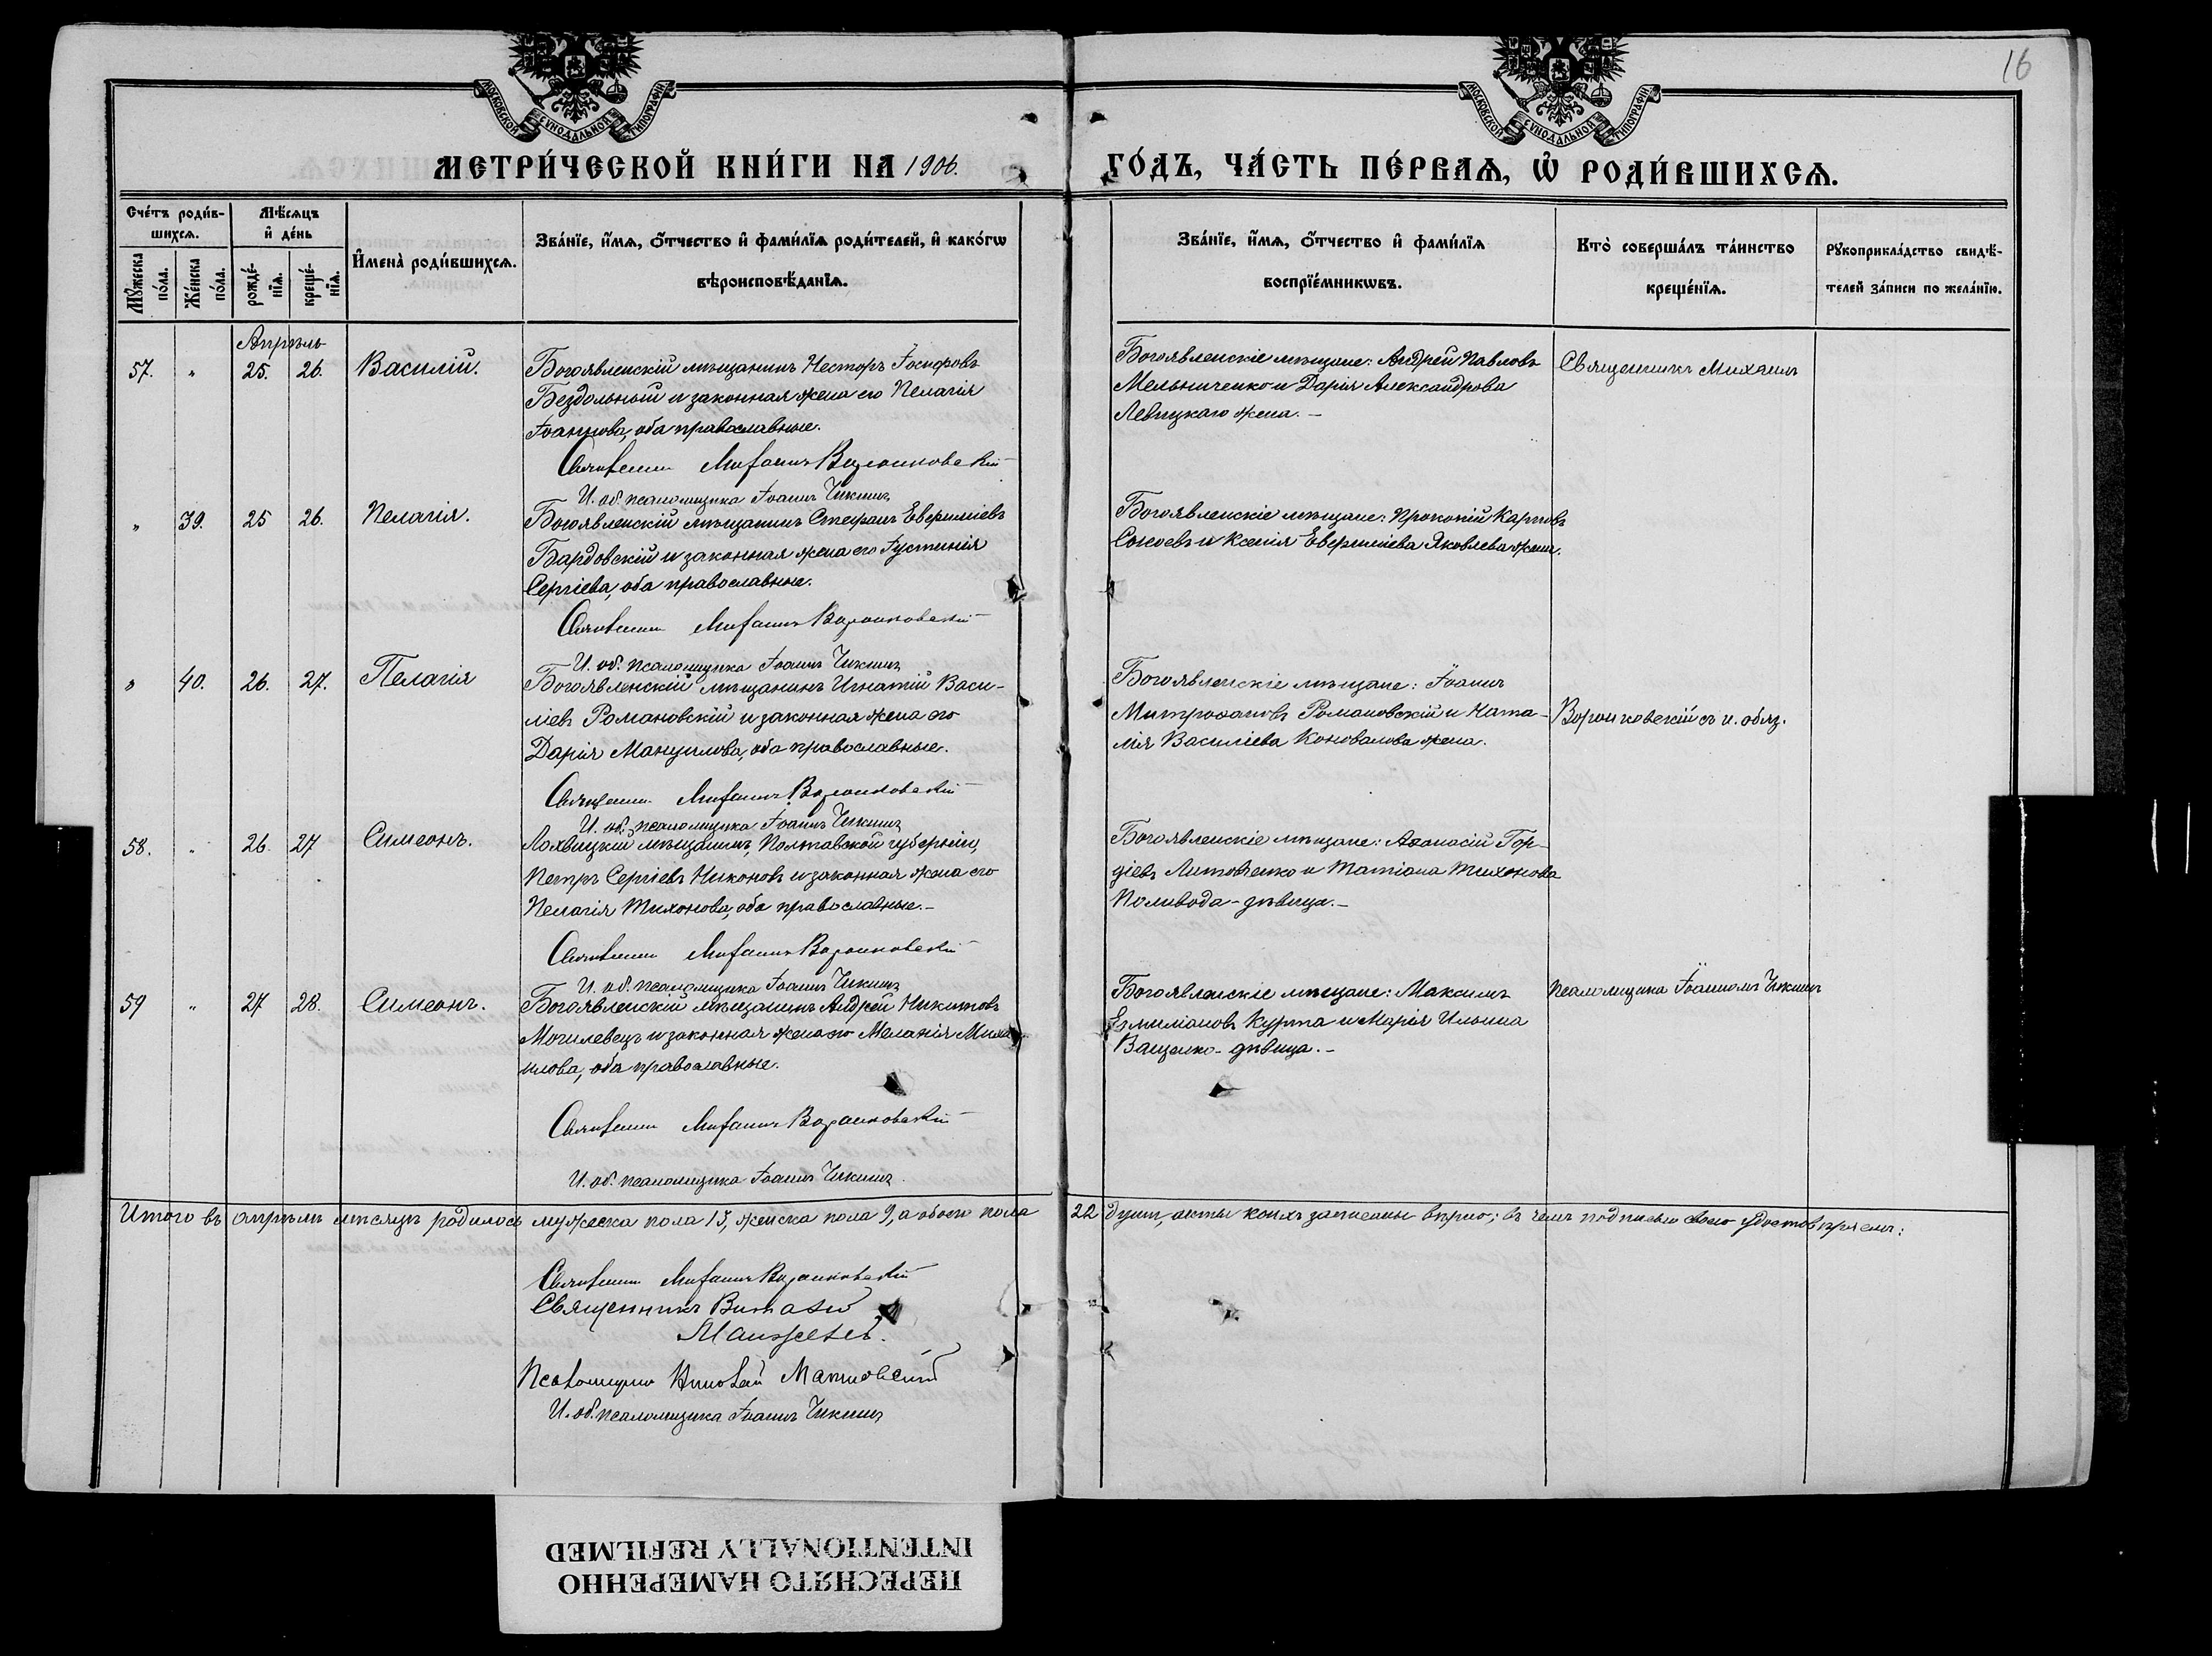 МОСКОВСКОЙ СѴНОДАЛЬНОЙ ТИПОГРАФІИ
МОСКОВСКОЙ СѴНОДАЛЬНОЙ ТИПОГРАФІИ
16
МЕТРИ́ЧЕСКОЙ КНИ́ГИ НА 1906.
ГО́ДЪ, ЧА́СТЬ ПЕ́РВАѦ, Ѡ҆ РОДИ́ВШИХСѦ.
Сче́тъ роди́в-
шихсѧ.
Мꙋ́жеска по́ла.
Же́нска по́ла.
Мѣ́сѧцъ
и҆ де́нь
рожде́-нїѧ.
креще́-нїѧ.
И҆мена̀ роди́вшихсѧ.
Зва́нїе, и҆́мѧ, ѻ҆́тчество и҆ фами́лїѧ роди́телей, и҆ како́гѡ
вѣроисповѣ́данїѧ.
Зва́нїе, и҆́мѧ, ѻ҆́тчество и҆ фами́лїѧ
воспрїе́мникѡвъ.
Кто̀ соверша́лъ та́инство
креще́нїѧ.
Рꙋкоприкла́дство свидѣ́-
телей за́писи по жела́нїю.
Апрѣль
57. " 25. 26. Василій.
Богоявленскій мѣщанинъ Несторъ Іосифовъ
Бездольный и законная жена его Пелагія
Іоаннова, оба православные.
Священникъ Михаилъ Воронковскій
И. об. псаломщика Іоаннъ Чикинъ
Богоявленскіе мѣщане: Андрей Павловъ
Мельниченко и Дарія Александрова
Левицкаго жена. –
Священникъ Михаилъ
" 39. 25 26. Пелагія.
Богоявленскій мѣщанинъ Стефанъ Евфиміевъ
Бардовскій и законная жена его Іустинія
Сергіева, оба православные.
Священникъ Михаилъ Воронковскій
И. об. псаломщика Іоаннъ Чикинъ
Богоявленскіе мѣщане: Прокопій Карповъ
и Ксенія Евфиміева Яковлева жена.
" 40. 26. 27. Пелагія
Богоявленскій мѣщанинъ Игнатій Васи-
ліевъ Романовскій и законная жена его
Дарія Мануилова, оба православные.
Священникъ Михаилъ Воронковскій
И. об. псаломщика Іоаннъ Чикинъ
Богоявленскіе мѣщане: Іоаннъ
Митрофановъ Романовскій и Ната-
лія Василіева Коновалова жена.
Воронковскій съ и. обяз.
58. " 26. 27 Симеонъ.
Лохвицкій мѣщанинъ, Полтавской губерніи,
Петръ Сергіевъ Никоновъ и законная жена его
Пелагія Тихонова, оба православные. –
Священникъ Михаилъ Воронковскій
И. об. псаломщика Іоаннъ Чикинъ
Богоявленскіе мѣщане: Аѳанасій Гор-
діевъ Литовченко и Татіана Тихонова
Поливода - дѣвица. –
59 " 27 28. Симеонъ.
Богоявленскій мѣщанинъ Андрей Никитовъ
Могилевецъ и законная жена его Меланія Миха
илова, оба православные.
Священникъ Михаилъ Воронковскій
И. об. псаломщика Іоаннъ Чикинъ.
Богоявленскіе мѣщане: Максимъ
Емиліановъ Курта и Марія Ильина
Ващенко - дѣвица. –
псаломщика Іоанномъ Чикинъ
Итого въ апрѣлѣ мѣсяцѣ родилось мужеска пола 13, женска пола 9, а обоего пола 22 души, акты коихъ записаны вѣрно; въ чемъ подписью своею удостовѣряемъ:
Священникъ Михаилъ Воронковскій
Священникъ Виталій
Псаломщикъ Николай
И. об. псаломщика Іоаннъ Чикинъ
ПЕРЕСНЯТО НАМЕРЕННО
INTENTIONALLY REFILMED